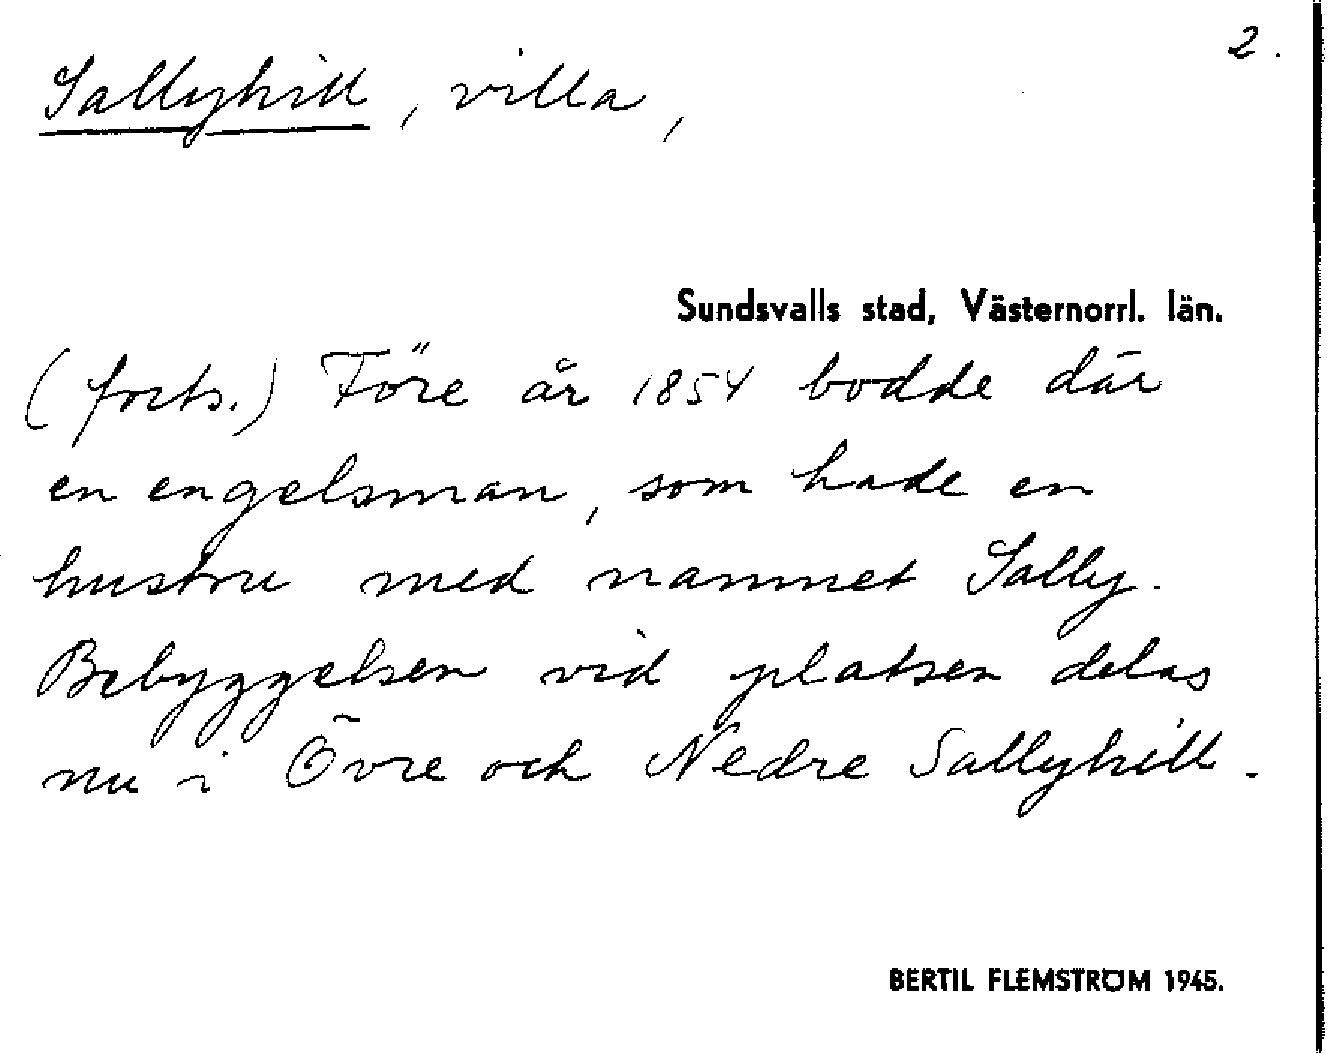 2.
Sallyhill, villa,
Sundsvalls stad, Västernorrl. län.
(forts.) Före år 1854 bodde där
en engelsman, som hade en
hustru med namnet Sally.
Bebyggelsen vid platsen delas
nu i Övre och Nedre Sallyhill.
BERTIL FLEMSTRÖM 1945.